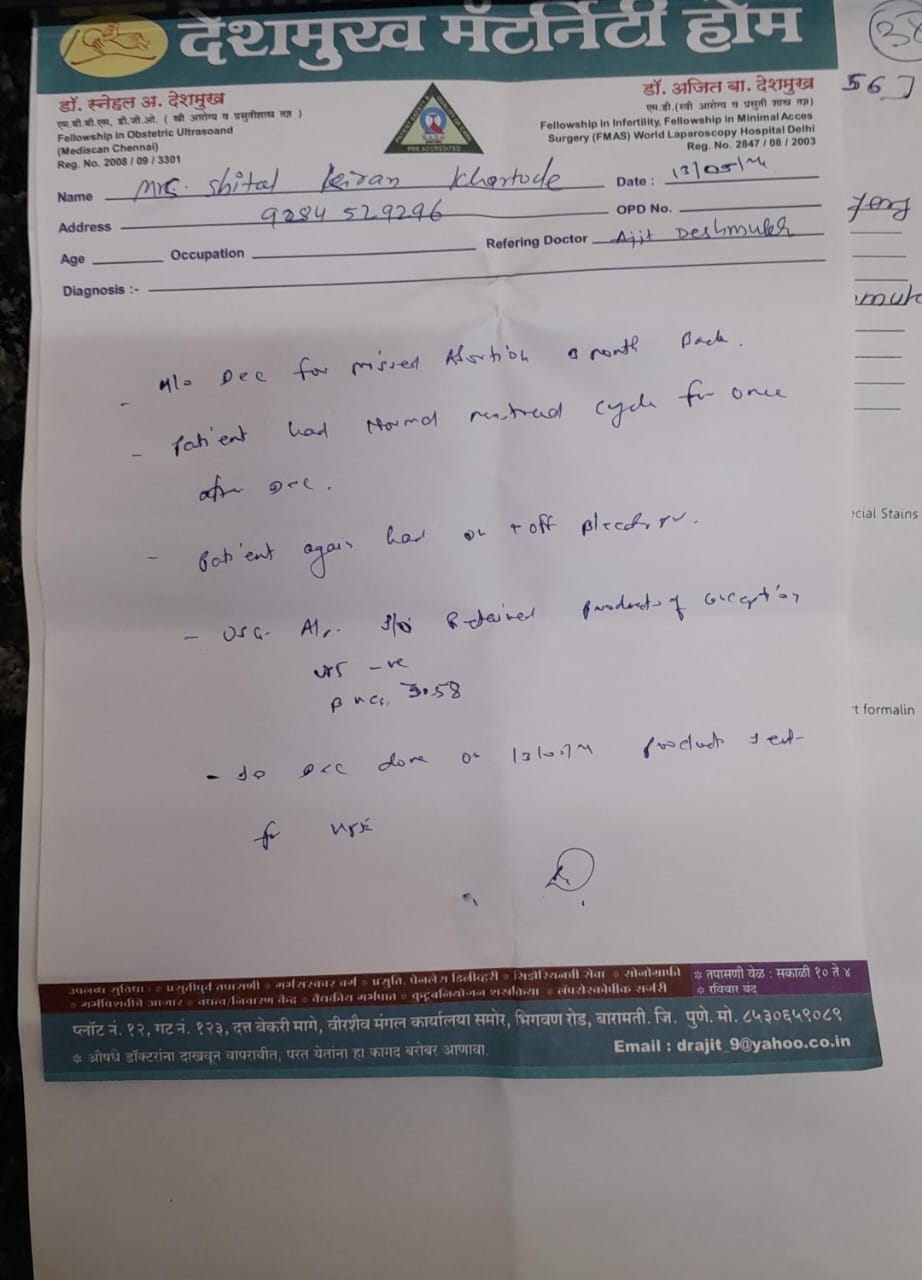 देशमुख मॅटर्निटी होम
डॉ. स्नेहल अ. देशमुख
एम.बी.बी.एस. डी.जी.ओ. ( स्त्री आरोग्य व प्रसुतीशास्त्र तज्ञ )
Fellowship in Obstetric Ultrasoand
(Mediscan Chennai)
Reg. No. 2008 / 09 / 3301
PRE ACCREDITED
डॉ. अजित बा. देशमुख
एम.डी.(स्त्री आरोग्य व प्रसुती शास्त्र तज्ञ)
Fellowship in Infertility, Fellowship in Minimal Acces
Surgery (FMAS) World Laparoscopy Hospital Delhi
Reg. No. 2847 / 08 / 2003
567
Name Mrs. Shital Kiran Khartode Date : 13/05/24
Address 9284 529296 OPD No.
Age Occupation Refering Doctor Ajit Deshmukh
Diagnosis :-
- H/o D&C for missed Abortion month Back.
- Patient had Normal menstrual cycle for once
after D&C.
- Patient again had on & off Bleeding PV.
- USG Retained products of conception
-ve
β HCG 3.58
- So D&C done on product sent
for
ecial Stains
t formalin
उपलब्ध सुविधा : प्रसुतीपुर्व तपासणी गर्भसंस्कार वर्ग प्रसुति, पेनलेस डिलीव्हरी सिझेरियनची सेवा सोनोग्राफी
गर्भपिशवीचे आजार वंधत्व/निवारण केंद्र वैद्यकीय गर्भपात कुटुंबनियोजन शस्त्रक्रिया लॅपरोस्कोपीक सर्जरी
* तपासणी वेळ : सकाळी १० ते ४
* रविवार बंद
प्लॉट नं. १२, गट नं. १२३, दत्त बेकरी मागे, वीरशैव मंगल कार्यालया समोर, भिगवण रोड, बारामती. जि. पुणे. मो. ८५३०६५९०८९
* औषधे डॉक्टरांना दाखवून वापरावीत, परत येतांना हा कागद बरोबर आणावा.
Email : drajit_9@yahoo.co.in